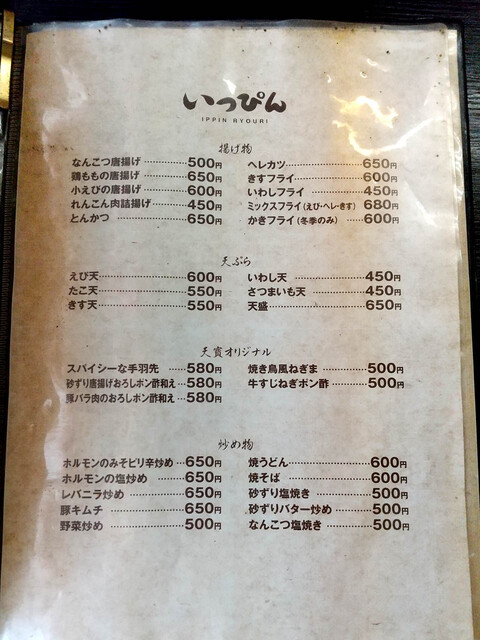 いっぴん
IPPIN RYOURI
揚げ物
なんこつ唐揚げ…………500円
鶏ももの唐揚げ…………650円
小えびの唐揚げ…………600円
れんこん肉詰揚げ………450円
とんかつ…………………650円
ヘレカツ…………………650円
きすフライ………………600円
いわしフライ……………450円
ミックスフライ(えび・ヘレ・きす) 680円
かきフライ(冬季のみ)…600円
天ぷら
えび天……………………600円
たこ天……………………550円
きす天……………………550円
いわし天…………………450円
さつまいも天……………450円
天盛………………………650円
天寳オリジナル
スパイシーな手羽先……580円
砂ずり唐揚げおろしポン酢和え…580円
豚バラ肉のおろしポン酢和え…580円
焼き鳥風ねぎま…………500円
牛すじねぎポン酢………500円
炒め物
ホルモンのみそピリ辛炒め…650円
ホルモンの塩炒め………650円
レバニラ炒め……………650円
豚キムチ…………………650円
野菜炒め…………………500円
焼うどん…………………600円
焼そば……………………600円
砂ずり塩焼き……………500円
砂ずりバター炒め………500円
なんこつ塩焼き…………500円